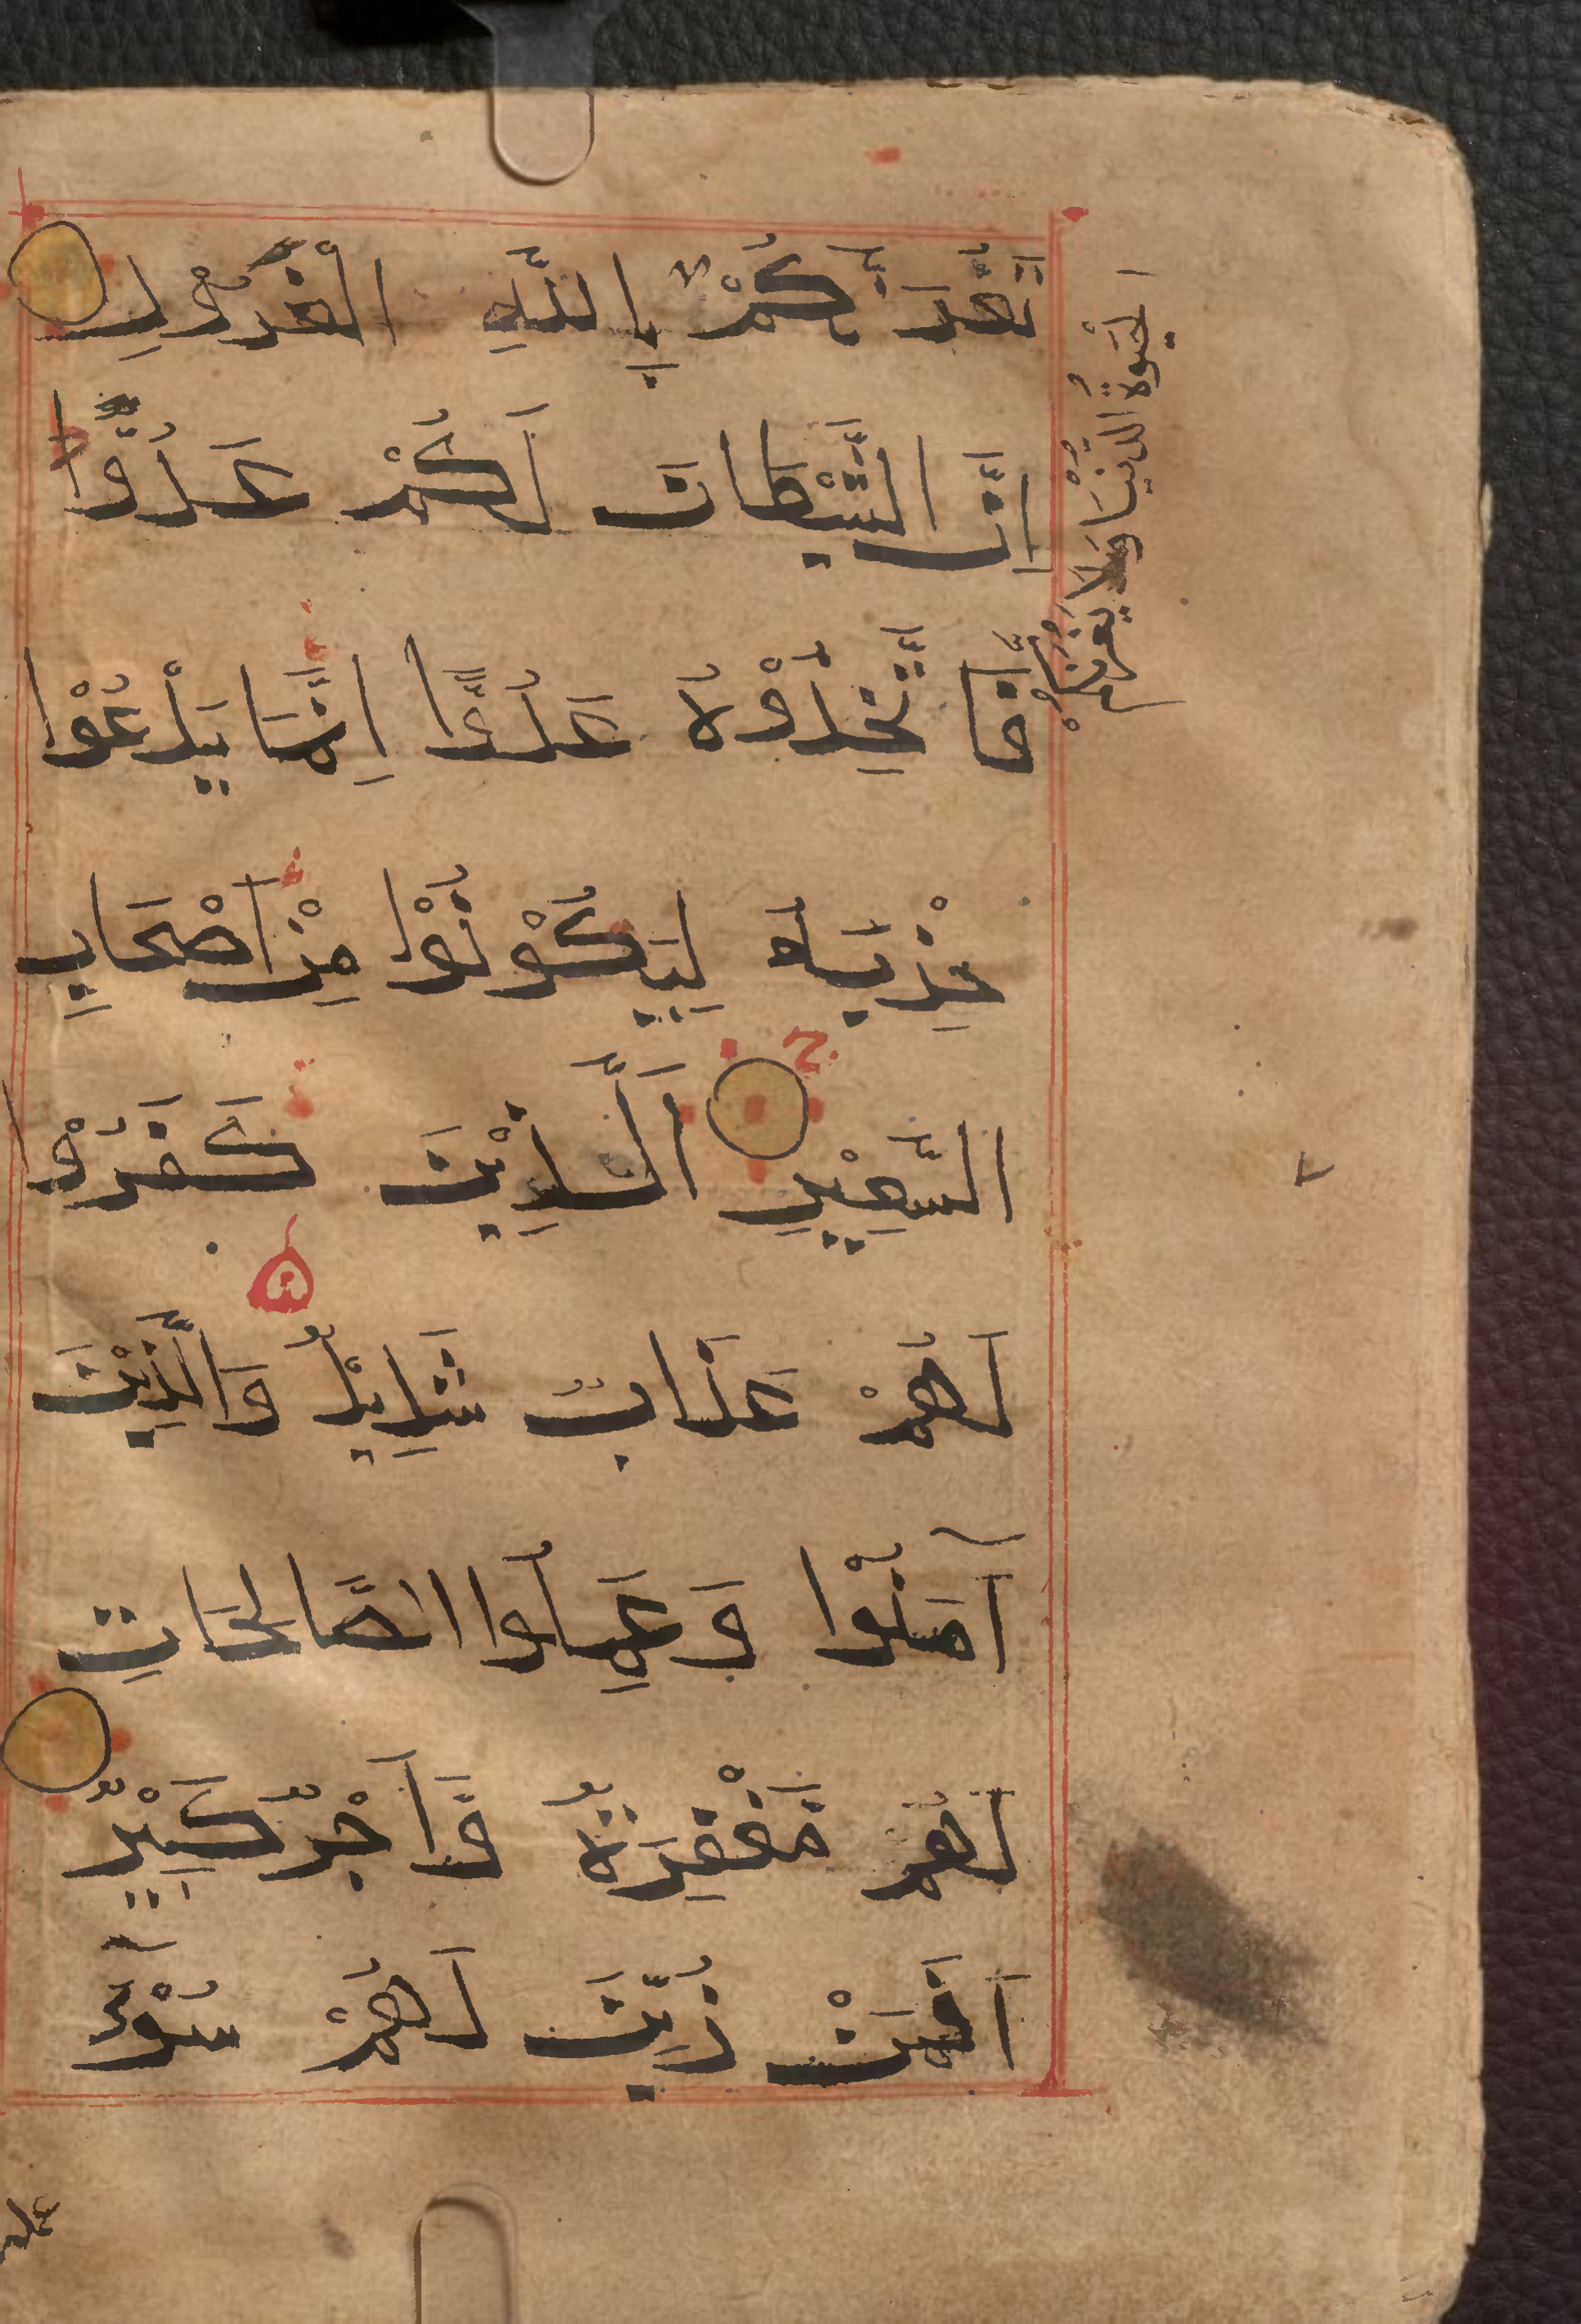 تَغُرَّنَّكُمْ بِاللَّهِ الْغَرُوْرِ
اِنَّ الشَّيْطَانَ لَكُمْ عَدُوٌّ
فَا تَّخِذُوْهُ عَدُوًّا اِنَّمَا يَدْعُوْا
حِزْبَهُ لِيَكُوْنُوْا مِنْ اَصْحَابِ
السَّعِيْرِ اَلَّذِيْنَ كَفَرُوْا
لَهُمْ عَذَابٌ شَدِيْدٌ وَالَّذِيْنَ
آمَنُوْا وَعَمِلُوا الصَّالِحَاتِ
لَهُمْ مَغْفِرَةٌ وَّاَجْرٌ كَبِيْرٌ
اَفَمَنْ زُيِّنَ لَهُمْ سُوْٓءُ
الْحَيٰوةُ الدُّنْيَا وَلَا يَغُرَّنَّكُمْ